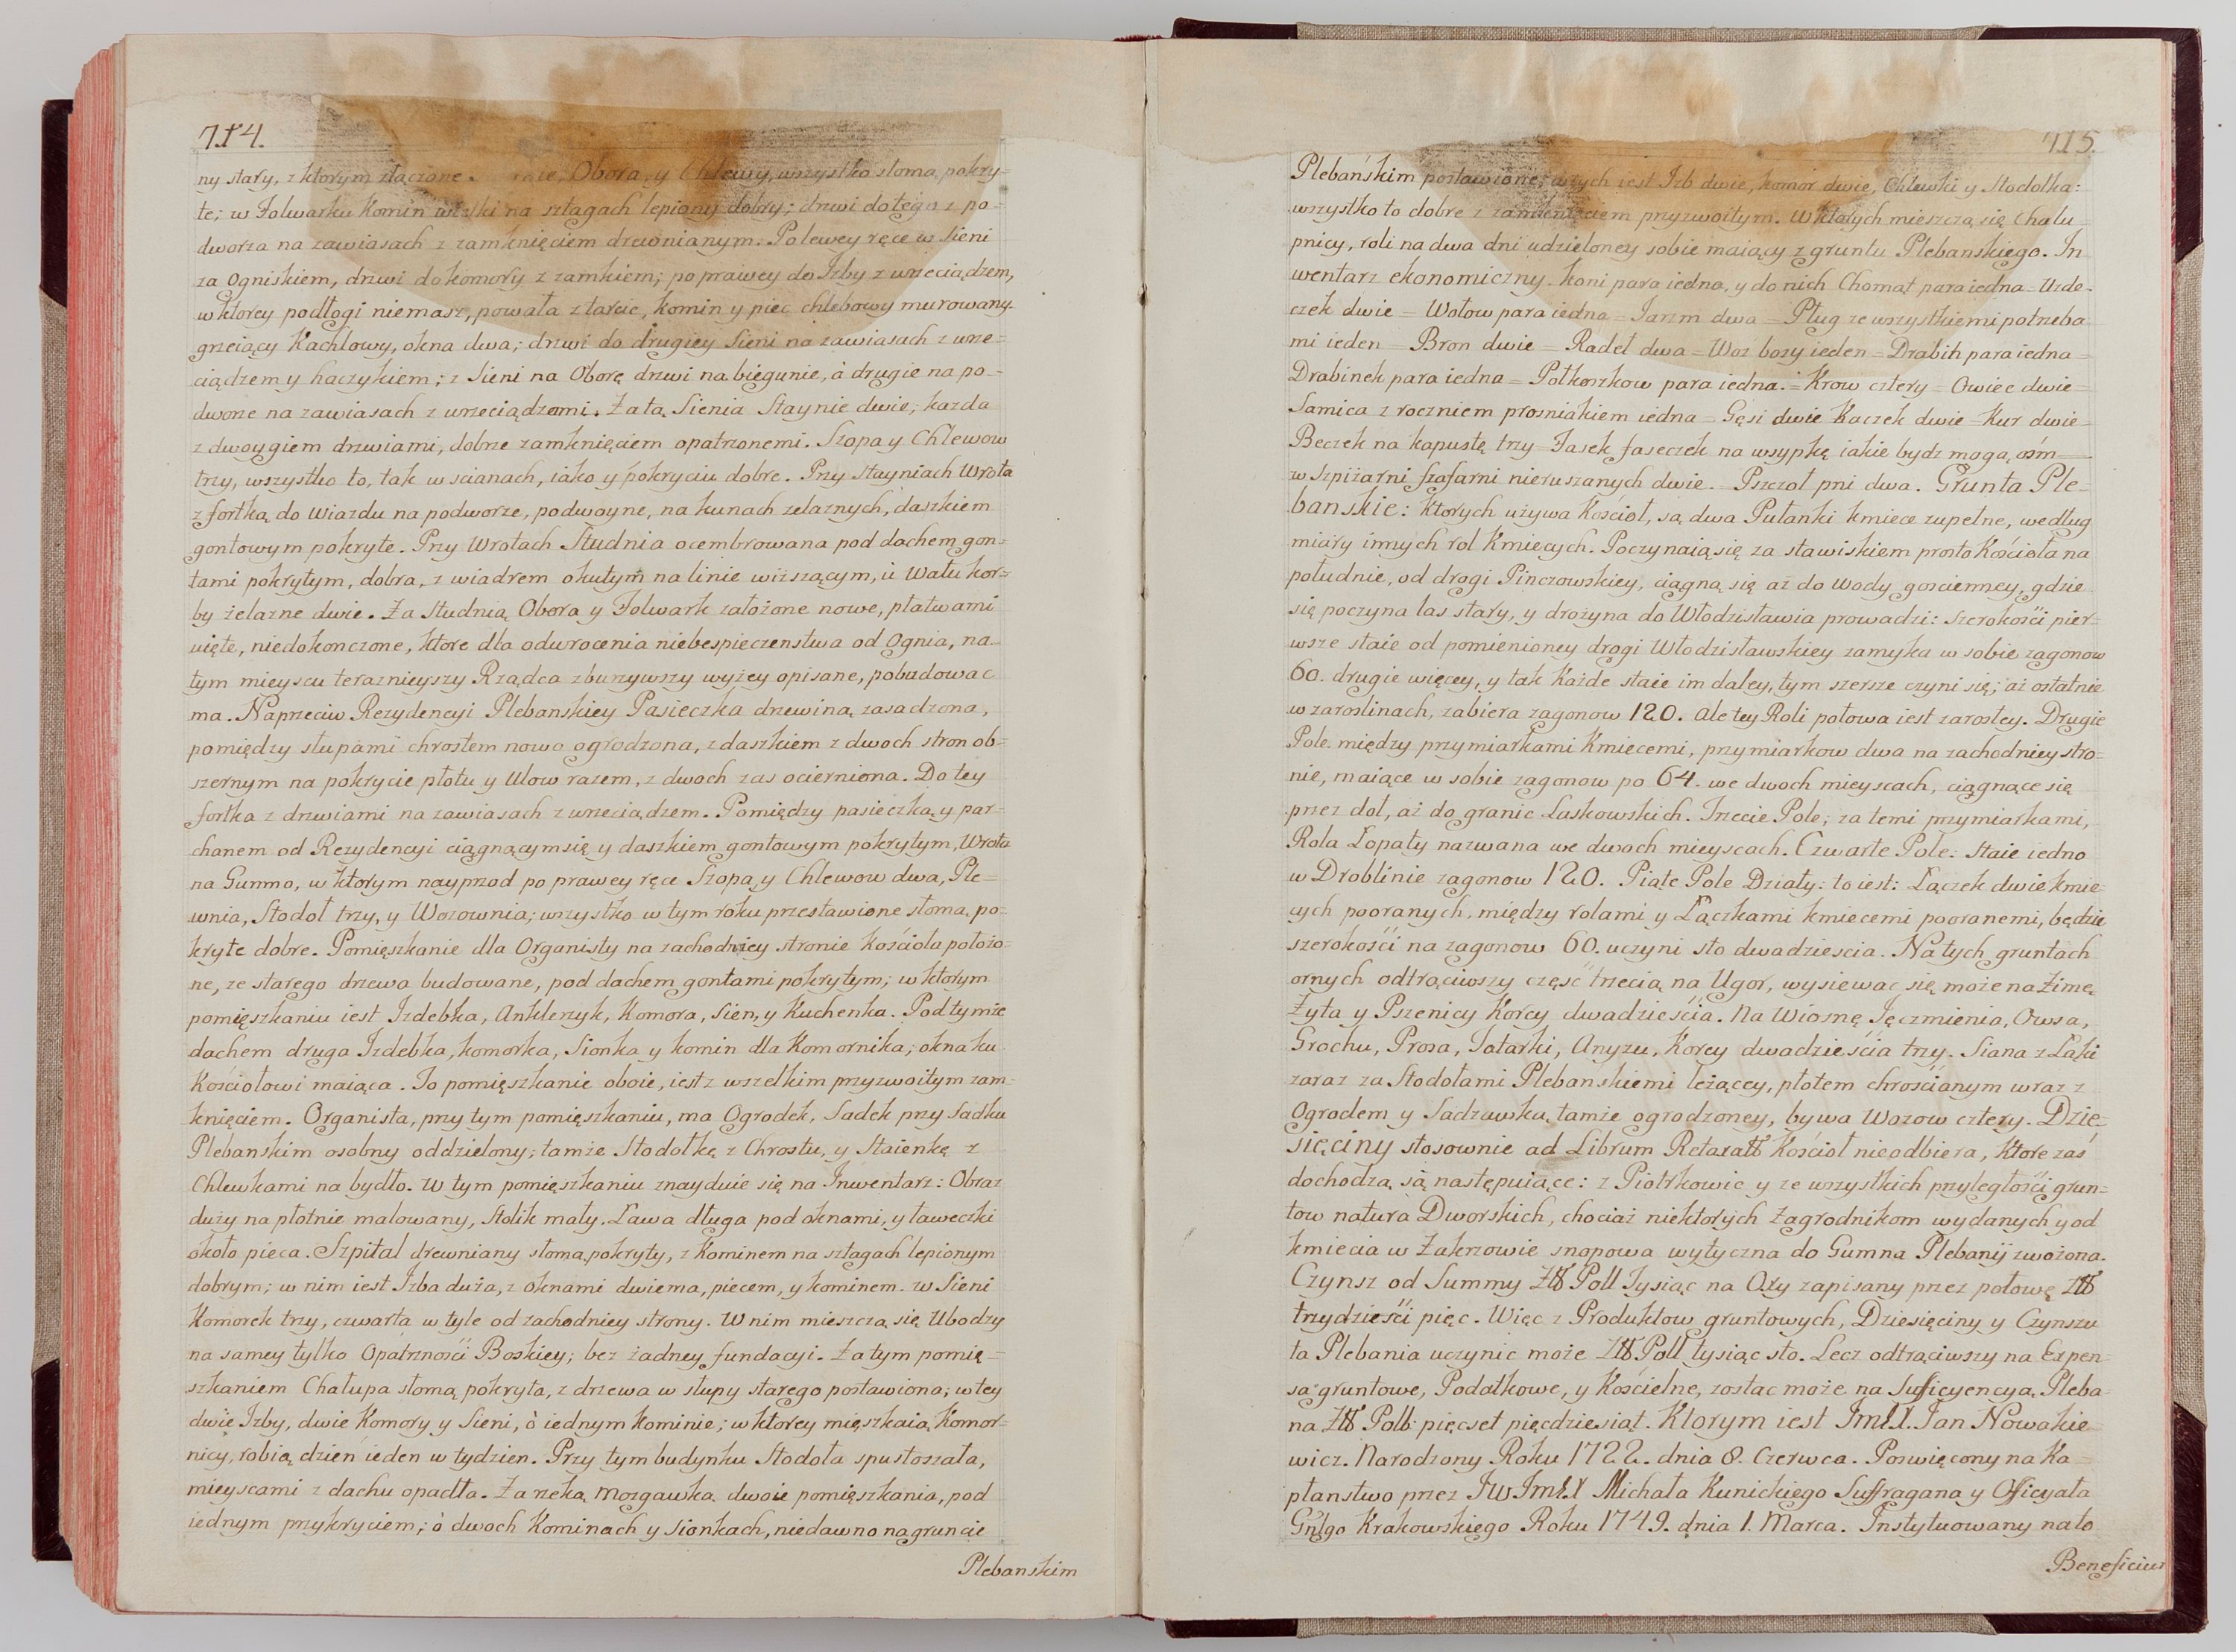 714.
ny stary, z ktorym złączone Obora, y Chlewy, wszystko słomą pokry=
te; w Folwarku Komin wielki na sztagach lepiony dobry; drzwi do tego z po=
dworza na zawiasach z zamknięciem drewnianym. Po lewey ręce w Sieni
za Ogniskiem, drzwi do komory z zamkiem; po prawey do Izby z wrzeciądzem,
w ktorey podłogi niemasz, powała z tarcic, komin y piec chlebowy murowany.
grzeiący Kachlowy, okna dwa; drzwi do drugiey Sieni na zawiasach z wrze=
ciądzem y haczykiem; z Sieni na Oborę drzwi na biegunie, à drugie na po=
dworze na zawiasach z wrzeciądzami. Za tą Sienią Staynie dwie; kazda
z dwoygiem drzwiami, dobrze zamknięciem opatrzonemi. Szopa y Chlewow
trzy, wszystko to, tak w scianach, iako y pokryciu dobre. Przy Stayniach Wrota
z fortką do Wiazdu na podworze, podwoyne, na kunach zelaznych, daszkiem
gontowym pokryte. Przy Wrotach Studnia ocembrowana pod dachem gon=
tami pokrytym, dobra, z wiadrem okutym na linie wiszącym, ù Wału kor=
by żelazne dwie. Za Studnią Obora y Folwark założone nowe, płatwami
uięte, niedokonczone, ktore dla odwrocenia niebespieczenstwa od Ognia, na
tym mieyscu teraznieyszy Rządca zburzywszy wyżey opisane, pobudowac
ma. Naprzeciw Rezydencyi Plebanskiey Pasieczka drzewiną zasadzona,
pomiędzy słupami chrostem nowo ogrodzona, z daszkiem z dwoch stron ob=
szernym na pokrycie płotu y Ulow razem, z dwoch zas ocierniona. Do tey
fortka z drzwiami na zawiasach z wrzeciądzem. Pomiędzy pasieczką y par=
chanem od Rezydencyi ciągnącym się y daszkiem gontowym pokrytym, Wrota
na Gumno, w ktorym nayprzod po prawey ręce Szopa, y Chlewow dwa, Ple=
wnia, Stodoł trzy, y Wozownia; wszystko w tym roku przestawione słomą po=
kryte dobre. Pomięszkanie dla Organisty na zachodniey stronie Kościoła położo=
ne, ze starego drzewa budowane, pod dachem gontami pokrytym; w ktorym
pomięszkaniu iest Izdebka, Anklerzyk, Komora, Sien, y Kuchenka. Pod tymże
dachem druga Izdebka, komorka, Sionka y komin dla Komornika; okna ku
Kościołowi maiąca. To pomięszkanie oboie, iest z wszelkim przyzwoitym zam=
knięciem. Organista, przy tym pomięszkaniu, ma Ogrodek, Sadek przy Sadku
Plebanskim osobny oddzielony; tamże Stodołkę z Chrostu, y Staienkę z
Chlewkami na bydło. W tym pomięszkaniu znayduie się na Inwentarz: Obraz
duży na płotnie malowany, Stolik mały, Ława długa pod oknami, y ławeczki
około pieca. Szpital drewniany słomą pokryty, z Kominem na sztagach lepionym
dobrym; w nim iest Izba duża, z oknami dwiema, piecem, y kominem. w Sieni
Komorek trzy, czwarta w tyle od zachodniey strony. W nim mieszczą się Ubodzy
na samey tylko Opatrznosci Boskiey; bez żadney fundacyi. Za tym pomię=
szkaniem Chałupa słomą pokryta, z drzewa w słupy starego postawiona; w tey
dwie Izby, dwie Komory y Sieni, ò iednym kominie; w ktorey mięszkaią Komor=
nicy, robią dzien ieden w tydzien. Przy tym budynku Stodoła spustoszała,
mieyscami z dachu opadła. Za rzeką Mozgawką dwoie pomięszkania, pod
iednym przykryciem; ò dwoch Kominach y Sionkach, niedawno na gruncie
Plebanskim
715.
Plebańskim postawione; w tych iest Izb dwie, komor dwie, Chlewki y Stodołka:
wszystko to dobre z zamknięciem przyzwoitym. W ktorych mieszczą się Chału=
pnicy, roli na dwa dni udzieloney sobie maiący z gruntu Plebanskiego. In
wentarz ekonomiczny. Koni para iedna, y do nich Chomąt para iedna = Uzde=
czek dwie = Wołow para iedna = Iarzm dwa = Pług ze wszystkiemi potrzeba
mi ieden = Bron dwie = Radeł dwa = Woz bozy ieden = Drabin para iedna =
Drabinek para iedna = Połkoszkow para iedna. = Krow cztery = Owiec dwie =
Samica z roczniem prosniakiem iedna = Gęsi dwie Kaczek dwie = Kur dwie =
Beczek na kapustę trzy = Fasek faseczek na wsypkę iakie bydz mogą ośm =
w Szpiżarni Szafarni nieruszanych dwie. = Pszczoł pni dwa. Grunta Ple=
banskie: Ktorych używa Kościoł, są dwa Pułanki kmiece zupełne, według
miary innych rol Kmiecych. Poczynaią się za stawiskiem prosto Kościoła na
południe, od drogi Pinczowskiey, ciągną się aż do Wody goscienney, gdzie
się poczyna las stary, y drożyna do Włodzisławia prowadzi: szerokości pier=
wsze staie od pomienioney drogi Włodzisławskiey zamyka w sobie zagonow
60. drugie więcey, y tak Każde staie im daley, tym szersze czyni się; aż ostatnie
w zaroslinach, zabiera zagonow 120. ale tey Roli połowa iest zarosłey. Drugie
Pole między przymiarkami Kmiecemi, przymiarkow dwa na zachodniey stro=
nie, maiące w sobie zagonow po 64. we dwoch mieyscach, ciągnące się
przez doł, aż do granic Laskowskich. Trzecie Pole; za temi przymiarkami,
Rola Łopaty nazwana we dwoch mieyscach. Czwarte Pole: Staie iedno
w Droblinie zagonow 120. Piąte Pole Działy: to iest: Łączek dwie kmie=
cych pooranych, między rolami y Łączkami kmiecemi pooranemi, będzie
szerokości na zagonow 60. uczyni sto dwadziescia. Na tych gruntach
ornych odtrąciwszy częsc trzecią na Ugor, wysiewac się może na Zimę
Żyta y Pszenicy Korcy dwadzieścia. Na Wiosnę Ięczmienia, Owsa,
Grochu, Prosa, Tatarki, Anyżu, Korcy dwadzieścia trzy. Siana z Łaki
zaraz za Stodołami Plebanskiemi leżącey, płotem chrościanym wraz z
Ogrodem y Sadzawką tamże ogrodzoney, bywa Wozow cztery. Dzie=
sięciny stosownie ad Librum Retaxat: Kościoł nieodbiera, Ktore zaś
dochodzą są następuiące: z Piotrkowic y ze wszystkich przyległości grun=
tow natura Dworskich, chociaż niektorych Zagrodnikom wydanych y od
kmiecia w Zakrzowie snopowa wytyczna do Gumna Plebanij zwożona.
Czynsz od Summy Zł Poll Tysiąc na Oxy zapisany przez połowę Zł
trzydzieści pięc. Więc z Produktow gruntowych, Dziesięciny y Czynszu
ta Plebania uczynic może Zł Poll tysiąc sto. Lecz odtrąciwszy na Expen=
sa gruntowe, Podatkowe, y Kościelne, zostac może na Sufficyencyą Pleba=
na Zł Poll: pięcset pięcdziesiąt. Ktorym iest ImX. Ian Nowakie=
wicz. Narodzony Roku 1722. dnia 8. Czerwca. Poswięcony na Ka=
płanstwo przez IW ImX Michała Kunickiego Suffragana y Officyała
Gnlgo Krakowskiego Roku 1749. dnia 1. Marca. Instytuowany na to
Beneficium